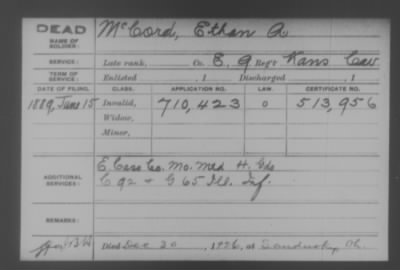 DEAD
NAME OF SOLDIER:
McCord, Ethan A
SERVICE: Late rank, Co. E, 9 Reg't Kans Cav
TERM OF SERVICE: Enlisted , 1 Discharged , 1
DATE OF FILING. CLASS. APPLICATION NO. LAW. CERTIFICATE NO.
1889, June 15 Invalid, 710,423 0 513,956
Widow,
Minor,
ADDITIONAL SERVICES:
E Cass Co. Mo. Med H. Gds
C 92 + G 65 Ill. Inf.
REMARKS:
Died Dec 20, 1926, at Sandusky, Oh.